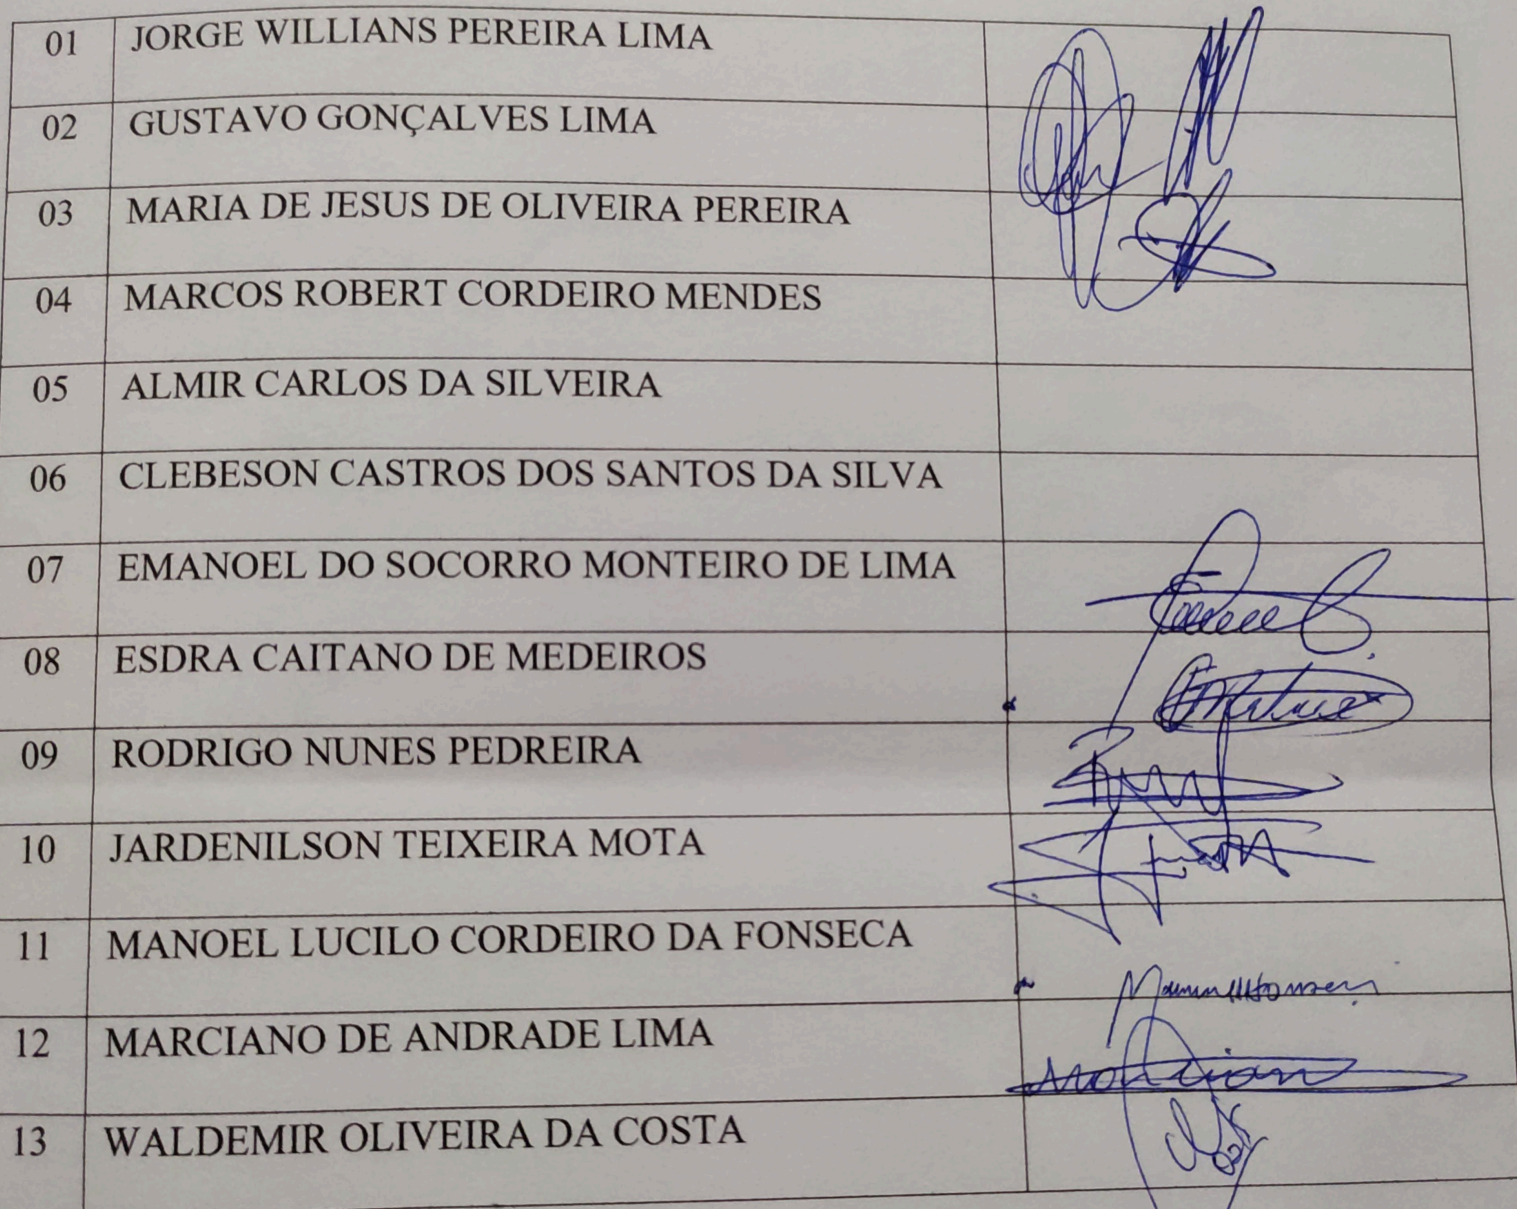 01 JORGE WILLIANS PEREIRA LIMA
02 GUSTAVO GONÇALVES LIMA
03 MARIA DE JESUS DE OLIVEIRA PEREIRA
04 MARCOS ROBERT CORDEIRO MENDES
05 ALMIR CARLOS DA SILVEIRA
06 CLEBESON CASTROS DOS SANTOS DA SILVA
07 EMANOEL DO SOCORRO MONTEIRO DE LIMA
08 ESDRA CAITANO DE MEDEIROS
09 RODRIGO NUNES PEDREIRA
10 JARDENILSON TEIXEIRA MOTA
11 MANOEL LUCILO CORDEIRO DA FONSECA
12 MARCIANO DE ANDRADE LIMA
13 WALDEMIR OLIVEIRA DA COSTA